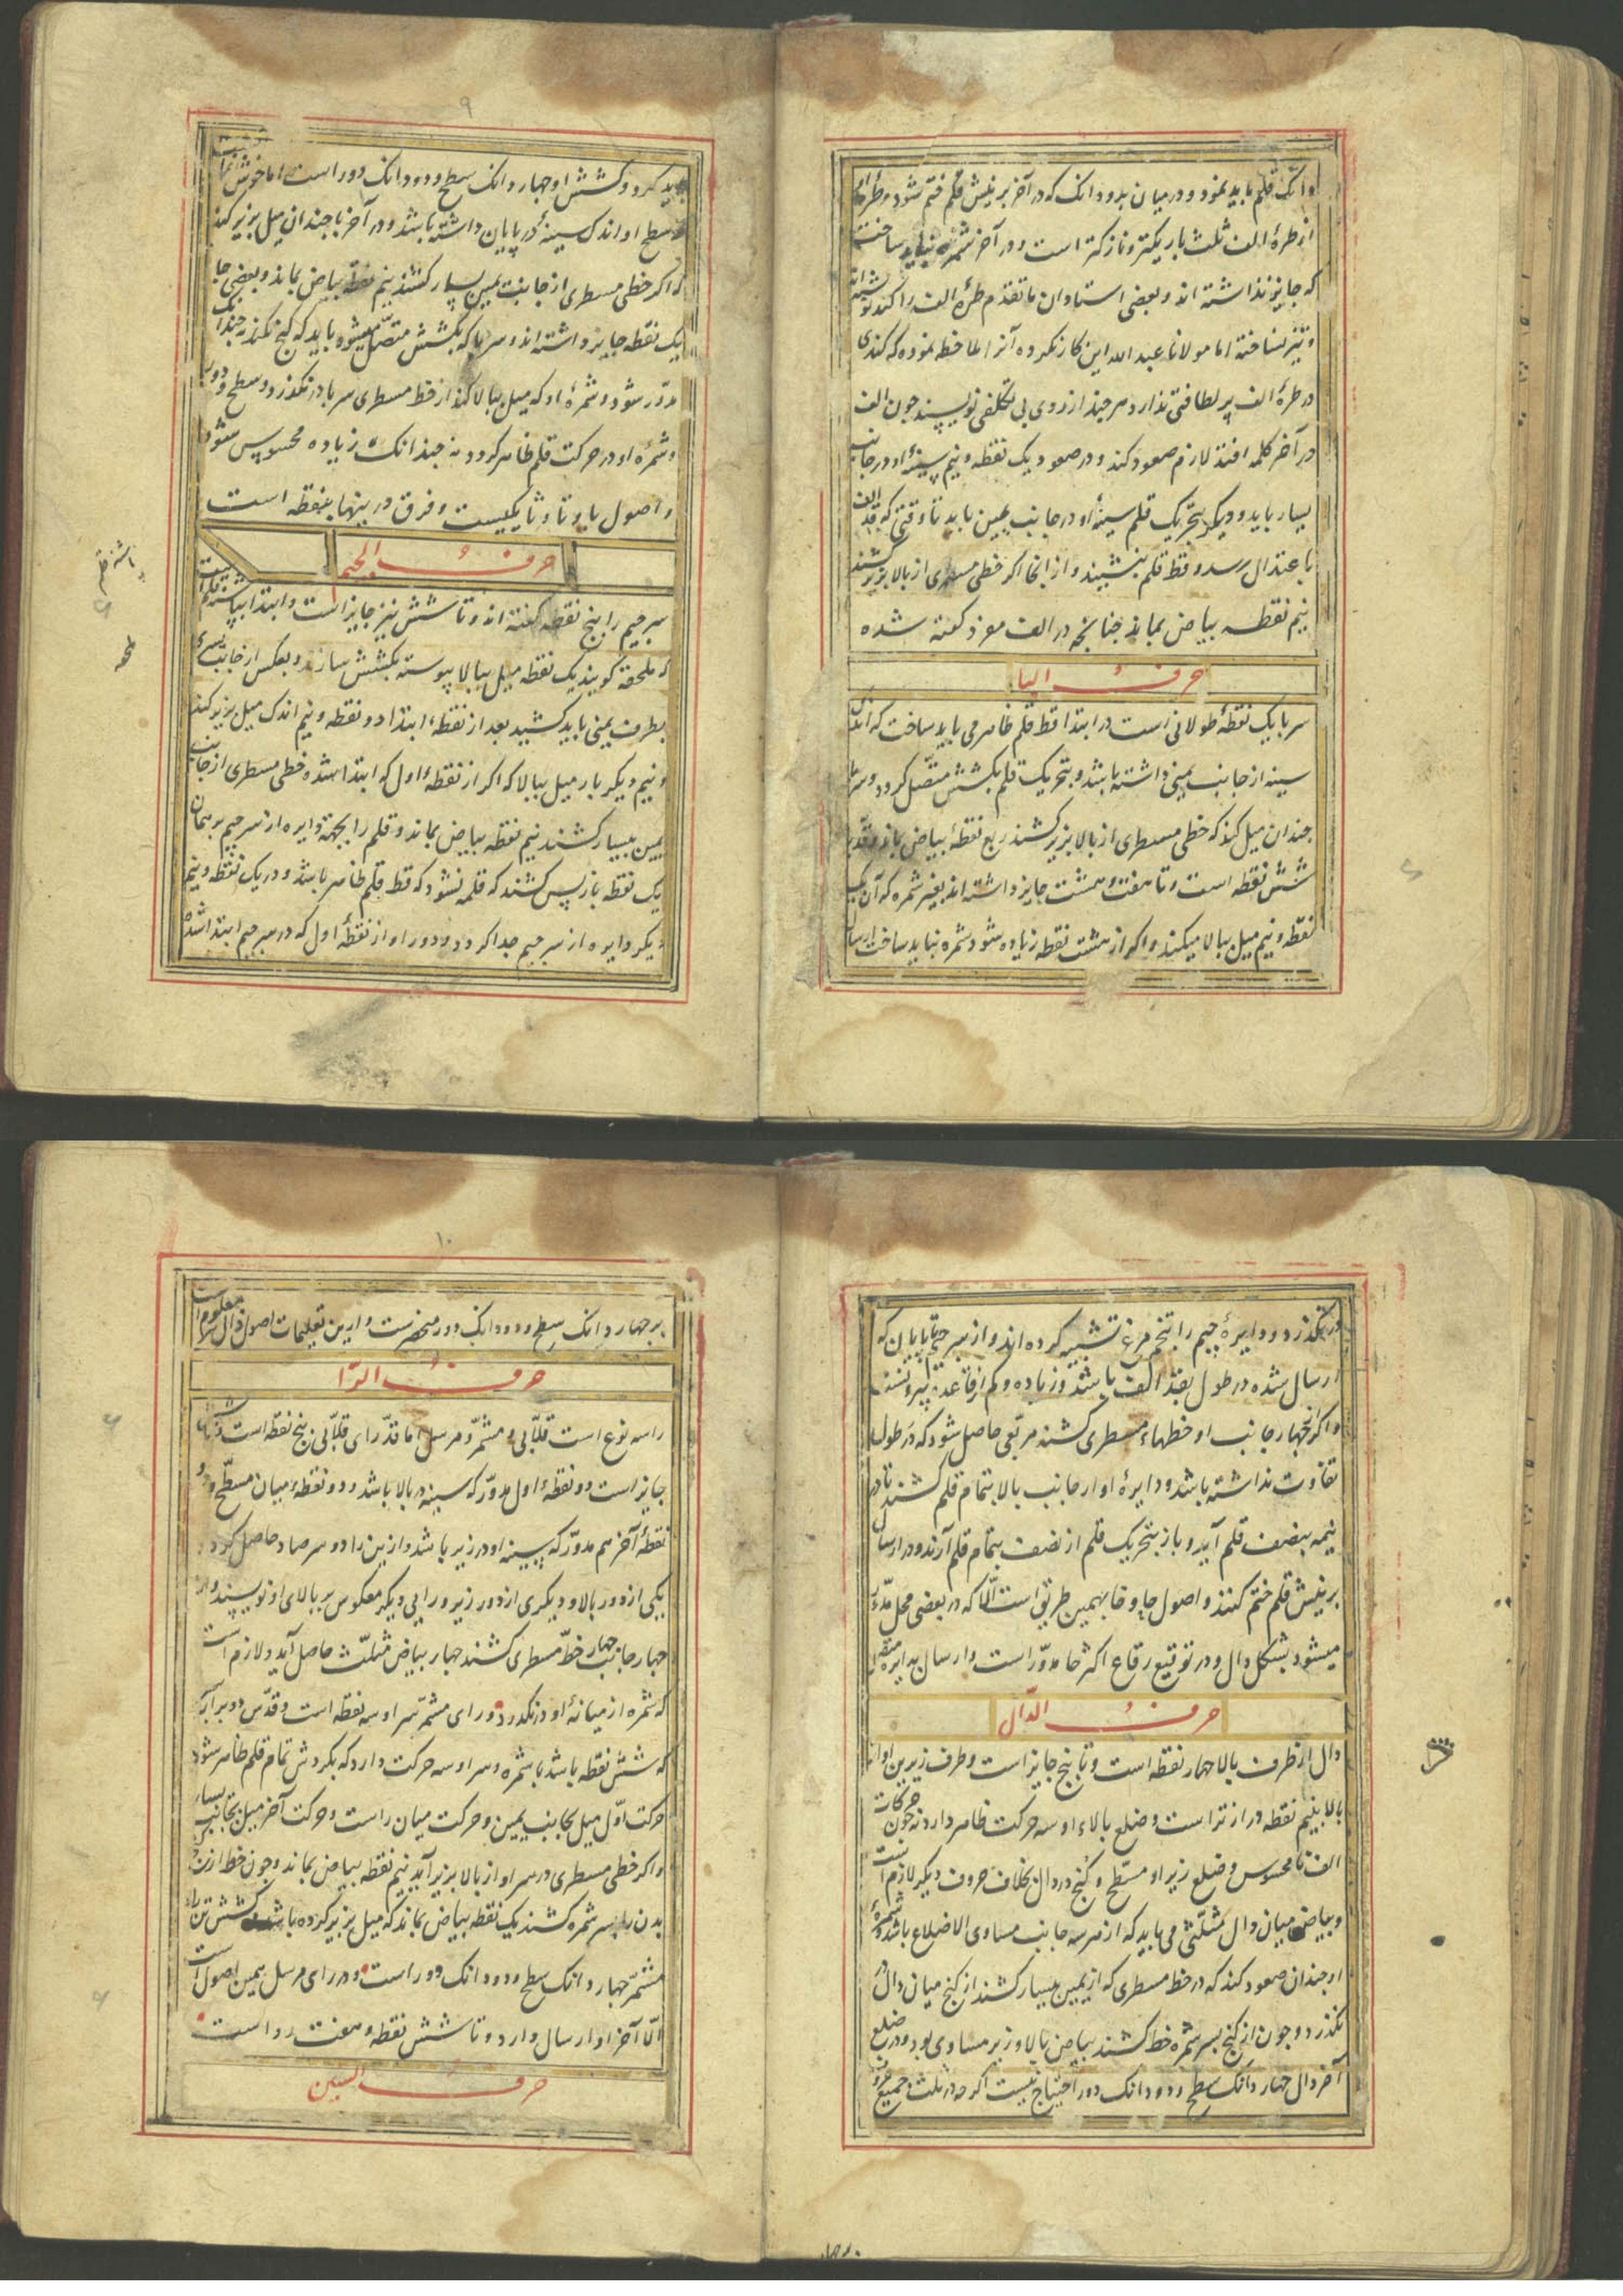 دانک قلم باید نمود و در میان بدو دانک که در آخر بر نیش قلم ختم شود و طره او
از طرهٔ الف ثلث باریکتر و نازکتر است و در آخر شمره نباید ساخت
که جایز نداشته اند و بعضی استادان ما تقدم طرهٔ الف را کند نوشته اند
و تیز نساخته اما مولانا عبد الله این کار نکرده آنرا ملاحظه نموده که کندی
در طرهٔ الف پر لطافتی ندارد هر چند از روی بی تکلفی نویسند چون الف
در آخر کلمه افتد لازم صعود کند و در صعود یک نقطه و نیم سینهٔ او در جانب
یسار باید و دیگر بتحریک قلم سینهٔ او در جانب یمین باید تا وقتی که قد الف
باعتدال رسد و قط قلم بنشیند و از انجا اگر خطی مسطری از بالا بزیر کشند
نیم نقطه بیاض بماند چنانچه در الف مفرد گفته شده
حرف البا
سر با یک نقطهٔ طولانی است در ابتدا قط قلم ظاهر می باید ساخت که اندک
سینه از جانب یمین داشته باشد و بتحریک قلم بکشش متصل گردد و سر با
چندان میل کند که خطی مسطری از بالا بزیر کشند ربع نقطهٔ بیاض بماند و قد با
شش نقطه است و تا هفت و هشت جایز داشته اند بغیر شمره که آن یک
نقطه و نیم میل ببالا میکند و اگر از هشت نقطه زیاده شود شمره نباید ساخت ارسال
۹
باید کرد و کشش او چهار دانک سطح و دو دانک دور است اما خوش نماست
که سطح او اندک سینهٔ در پایان داشته باشد و در آخر با چندان میل بزیر کند
که اگر خطی مسطری از جانب یمین بیسار کشند نیم نقطه بیاض بماند و بعضی جا
یک نقطه جایز داشته اند و سر با که بکشش متصل میشود باید که کنج نکند نه چندانک
مدور شود و شمرهٔ او که میل ببالا کند از خط مسطری سر با در نگذرد و سطح و دور
و شمره او در حرکت قلم ظاهر گردد نه چندانک زیاده محسوس شود
و اصول با و تا و ثا یکیست و فرق در بینها بنقطه است
حرف الجیم
سر جیم را پنج نقطه گفته اند و تا شش نیز جایز است و ابتدا بپاشنه قلم است
که ملحقه گویند یک نقطه میل ببالا پیوسته بکشش سازند و بعکس از جانب یسری
بطرف یمنی باید کشید بعد از نقطهٔ ابتدا دو نقطه و نیم اندک میل بزیر کند
و نیم دیگر باز میل ببالا که اگر از نقطهٔ اول که ابتدا شده خطی مسطری از جانب
یمین بیسار کشند نیم نقطه بیاض بماند و قلم را بجهة دایره از سر جیم بر همان
یک نقطه باز پس کشند که قلمه نشود که قط قلم ظاهر باشد و در یک نقطه و نیم
دیگر دایره از سر جیم جدا گردد و دور او از نقطهٔ اول که در سر جیم ابتدا شد
در نگذرد و دایرهٔ جیم را بتخم مرغ تشبیه کرده اند و از سر جیم تا پایان که
ارسال شده در طول بقد الف باشد و زیاده و کم از قاعده بیرونست
و اگر بچهار جانب او خطهاء مسطری کشند مربعی حاصل شود که در طول
تفاوت نداشته باشد و دایرهٔ او از جانب بالا بتمام قلم کشند تا در
نیمه بنصف قلم آید و باز بتحریک قلم از نصف بتمام قلم آرند و در ارسال
بر نیش قلم ختم کنند و اصول حا و خا بهمین طریق است الا که در بعضی محل مد
میشود بشکل دال و در توقیع رقاع اکثر خا مدور است و ارسال بدایره
حرف الدال
دال از طرف بالا چهار نقطه است و تا پنج جایز است و طرف زیرین او از
بالا بنیم نقطه دراز تر است و ضلع بالاء او سه حرکت ظاهر دارد نه چون حرکات
الف نا محسوس و ضلع زیر او مسطح و کنج در دال بخلاف حروف دیگر لازم است
و بیاض میان دال مثلثی می باید که از هر سه جانب مساوی الاضلاع باشد و شمرهٔ
او چندان صعود کند که در خط مسطری که از یمین بیسار کشند از کنج میان دال
نگذرد و چون از کنج بسر شمره خط کشند بیاض بالا و زیر مساوی بود و در ضلع
آخر دال چهار دانک سطح و دو دانک دور احتیاج نیست اگر چه در ثلث جمیع حروف
۱۰
بر چهار دانک سطح و دو دانک دور منحصرست و ازین تعلیمات اصول ذال معلوم است
حرف الرا
را سه نوع است قلابی و مشمر و مرسل اما قد رای قلابی پنج نقطه است
جایز است دو نقطهٔ اول مدور که سینه در بالا باشد و دو نقطهٔ میان مسطح و
نقطهٔ آخر هم مدور که سینه او در زیر باشد و ازین را دو سر صاد حاصل گردد
یکی از دور بالا و دیگری از دور زیر و رایی دیگر معکوس بر بالای او نویسند و از
چهار جانب چهار خط مسطری کشند چهار بیاض مثلث حاصل آید و لازم است
که شمره از میانهٔ او در نگذرد و رای مشمر سر او سه نقطه است و قدش دو برابر
که شش نقطه باشد با شمره و سر او سه حرکت دارد که بگردش تمام قلم ظاهر شود
حرکت اول میل بجانب یمین و حرکت میان راست و حرکت آخر میل بجانب یسار
و اگر خطی مسطری در سر او از بالا بزیر آید نیم نقطه بیاض بماند و چون خط از تن
بدن را بسر شمره کشند یک نقطه بیاض بماند که میل بزیر کرده باشد و کشش تن رای
مشمر چهار دانک سطح و دو دانک دور است و در رای مرسل همین اصول است
الا آخر او ارسال دارد و تا شش نقطه و هفت رواست
حرف السین